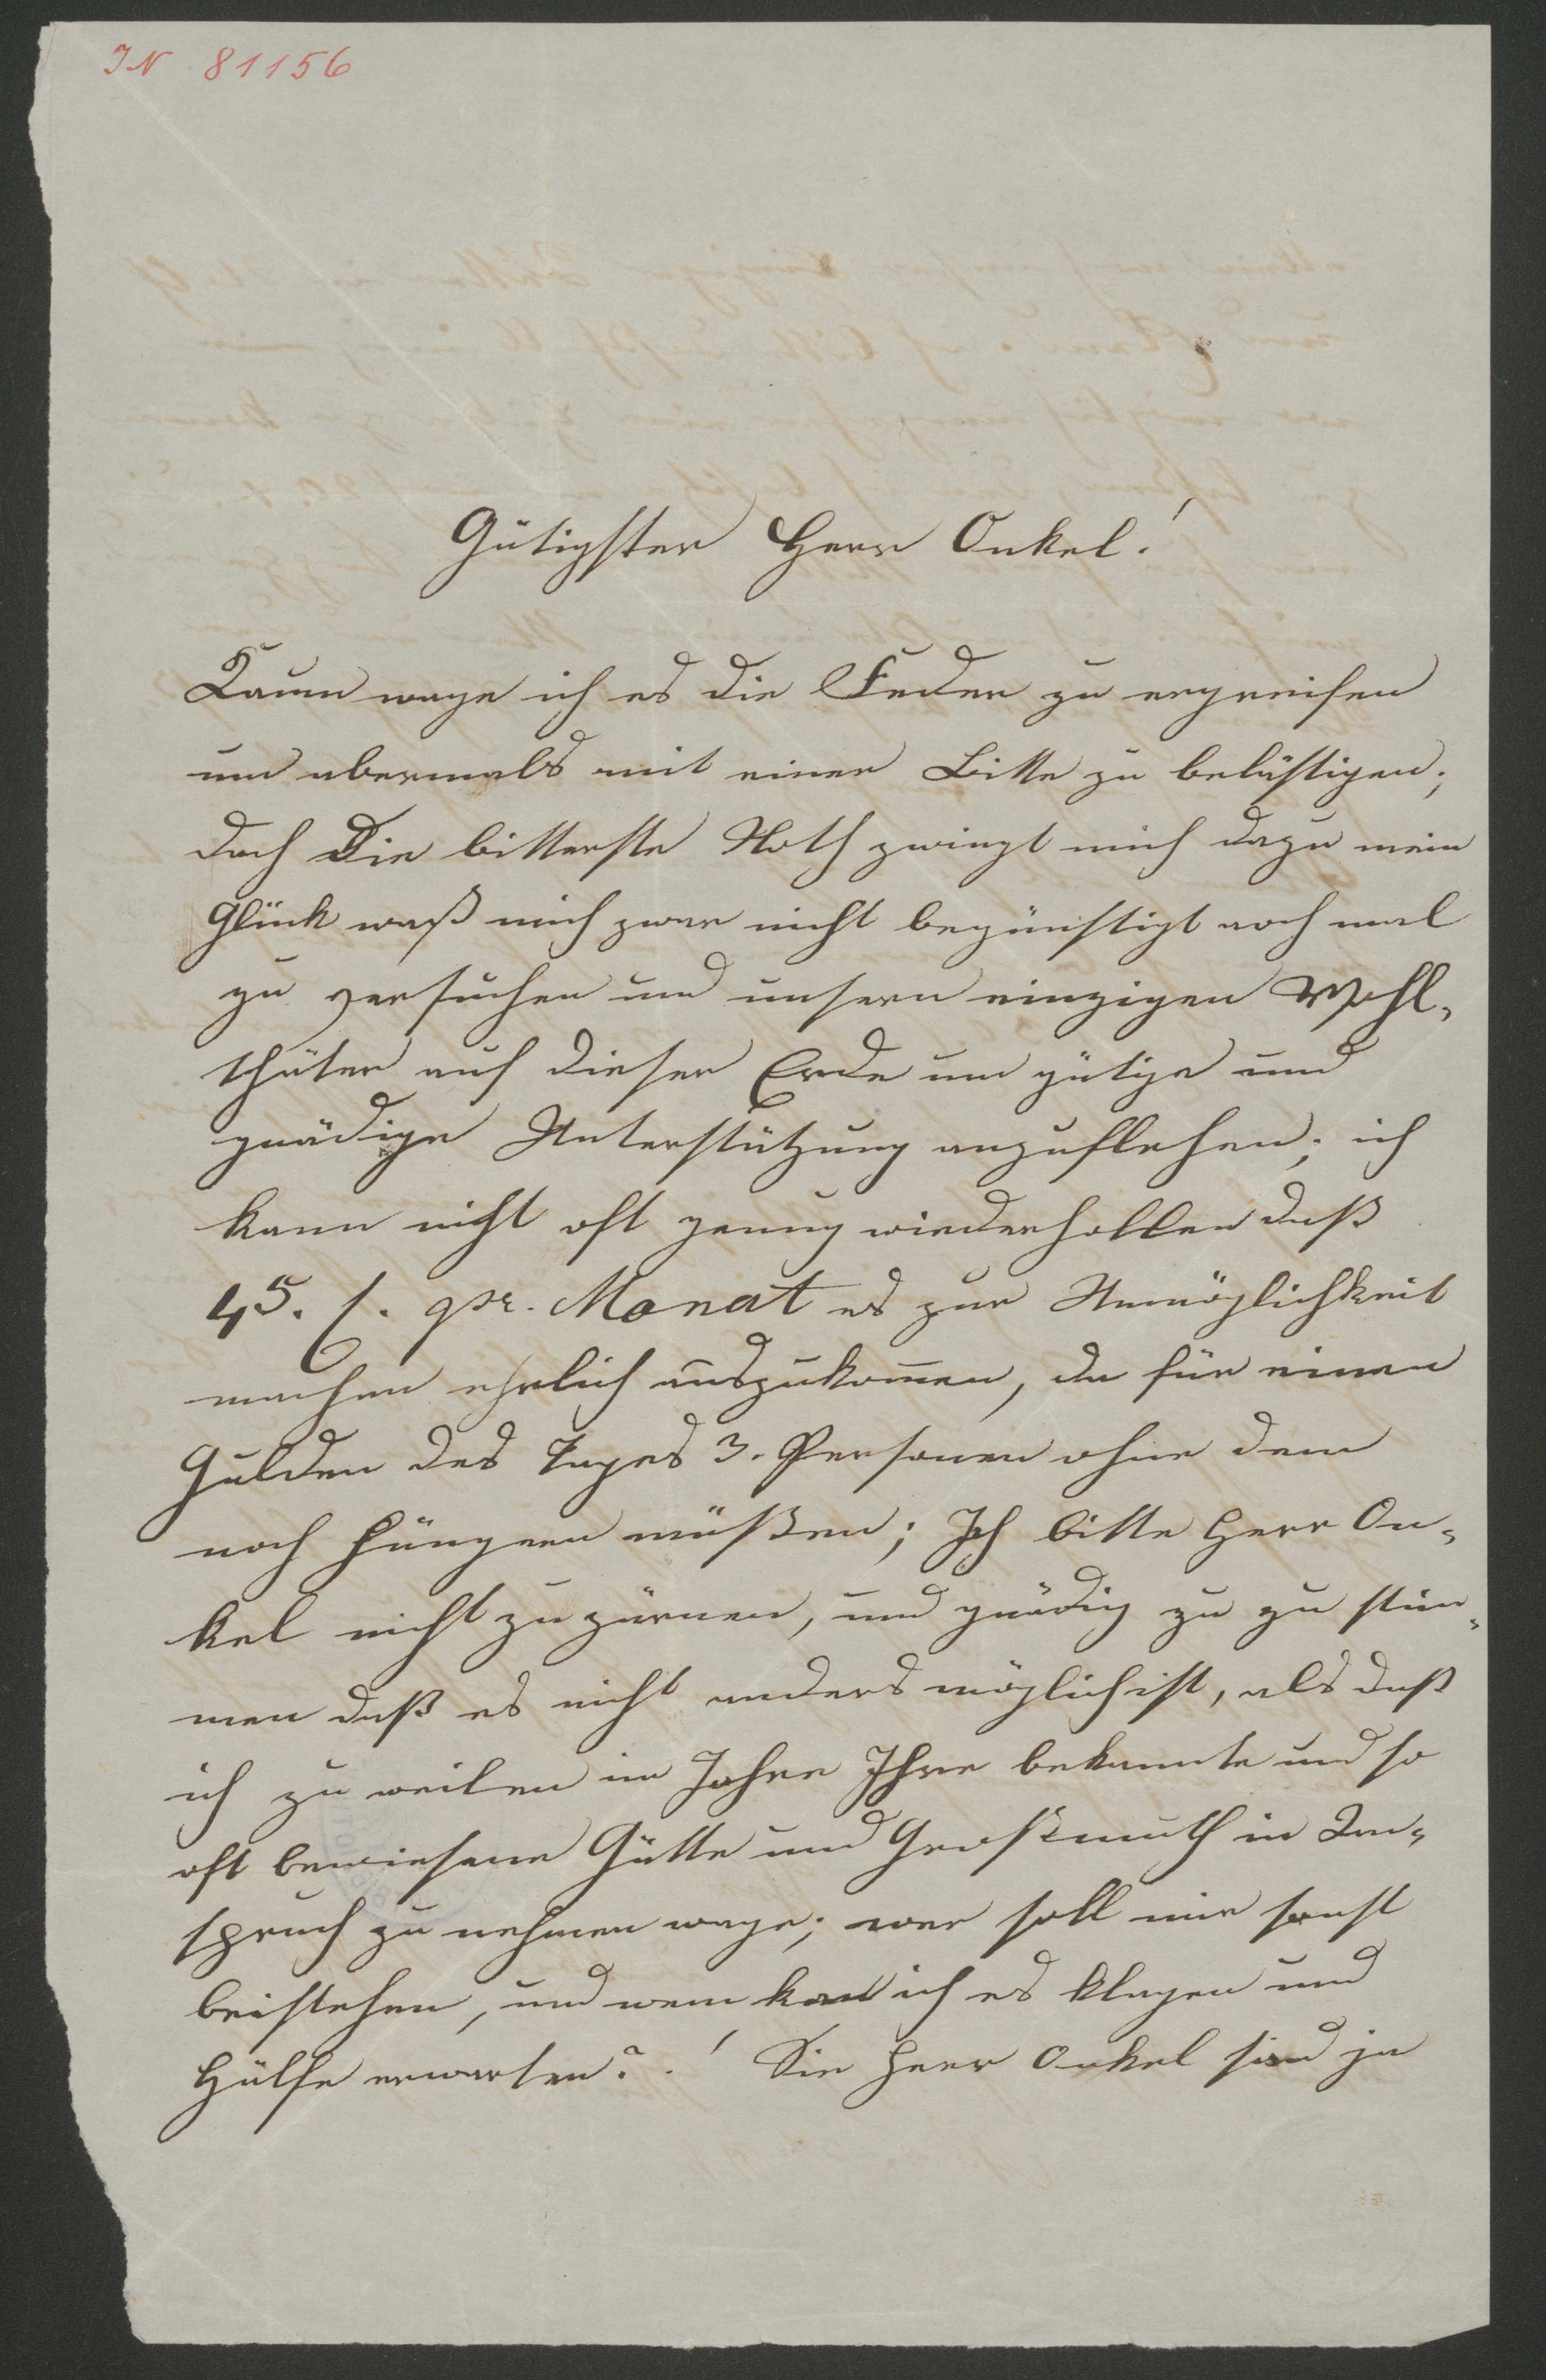 IN 81156
Gütigster Herr Onkel!
Kaum wage ich es die Feder zu ergreifen
um abermals mit einer Bitte zu belästigen;
doch die bitterste Noth zwingt mich dazu mein
Glück waß mich zwar nicht begünstigt noch mal
zu versuchen und unsern einzigen Wohl-
thäter auf dieser Erde um gütige und
gnädige Unterstützung anzuflehen; ich
kann nicht oft genug wiederhollen daß
45. f. pr. Monat es zur Unmöglichkeit
machen ehrlich auszukom̅en, da für einen
Gulden des Tages 3. Personen ohne dem
noch hungern müßen; Ich bitte Herr On-
kel nicht zu zürnen, und gnädig zu zu stim-
men daß es nicht anders möglich ist, als daß
ich zu weilen im Jahre Ihre bekannte und so
oft bewiesene Gütte und Großmuth in An-
spruch zu nehmen wage; wer soll mir sonst
beistehen, und wem kan ich es klagen und
Hülfe erwarten?! Sie Herr Onkel sind ja